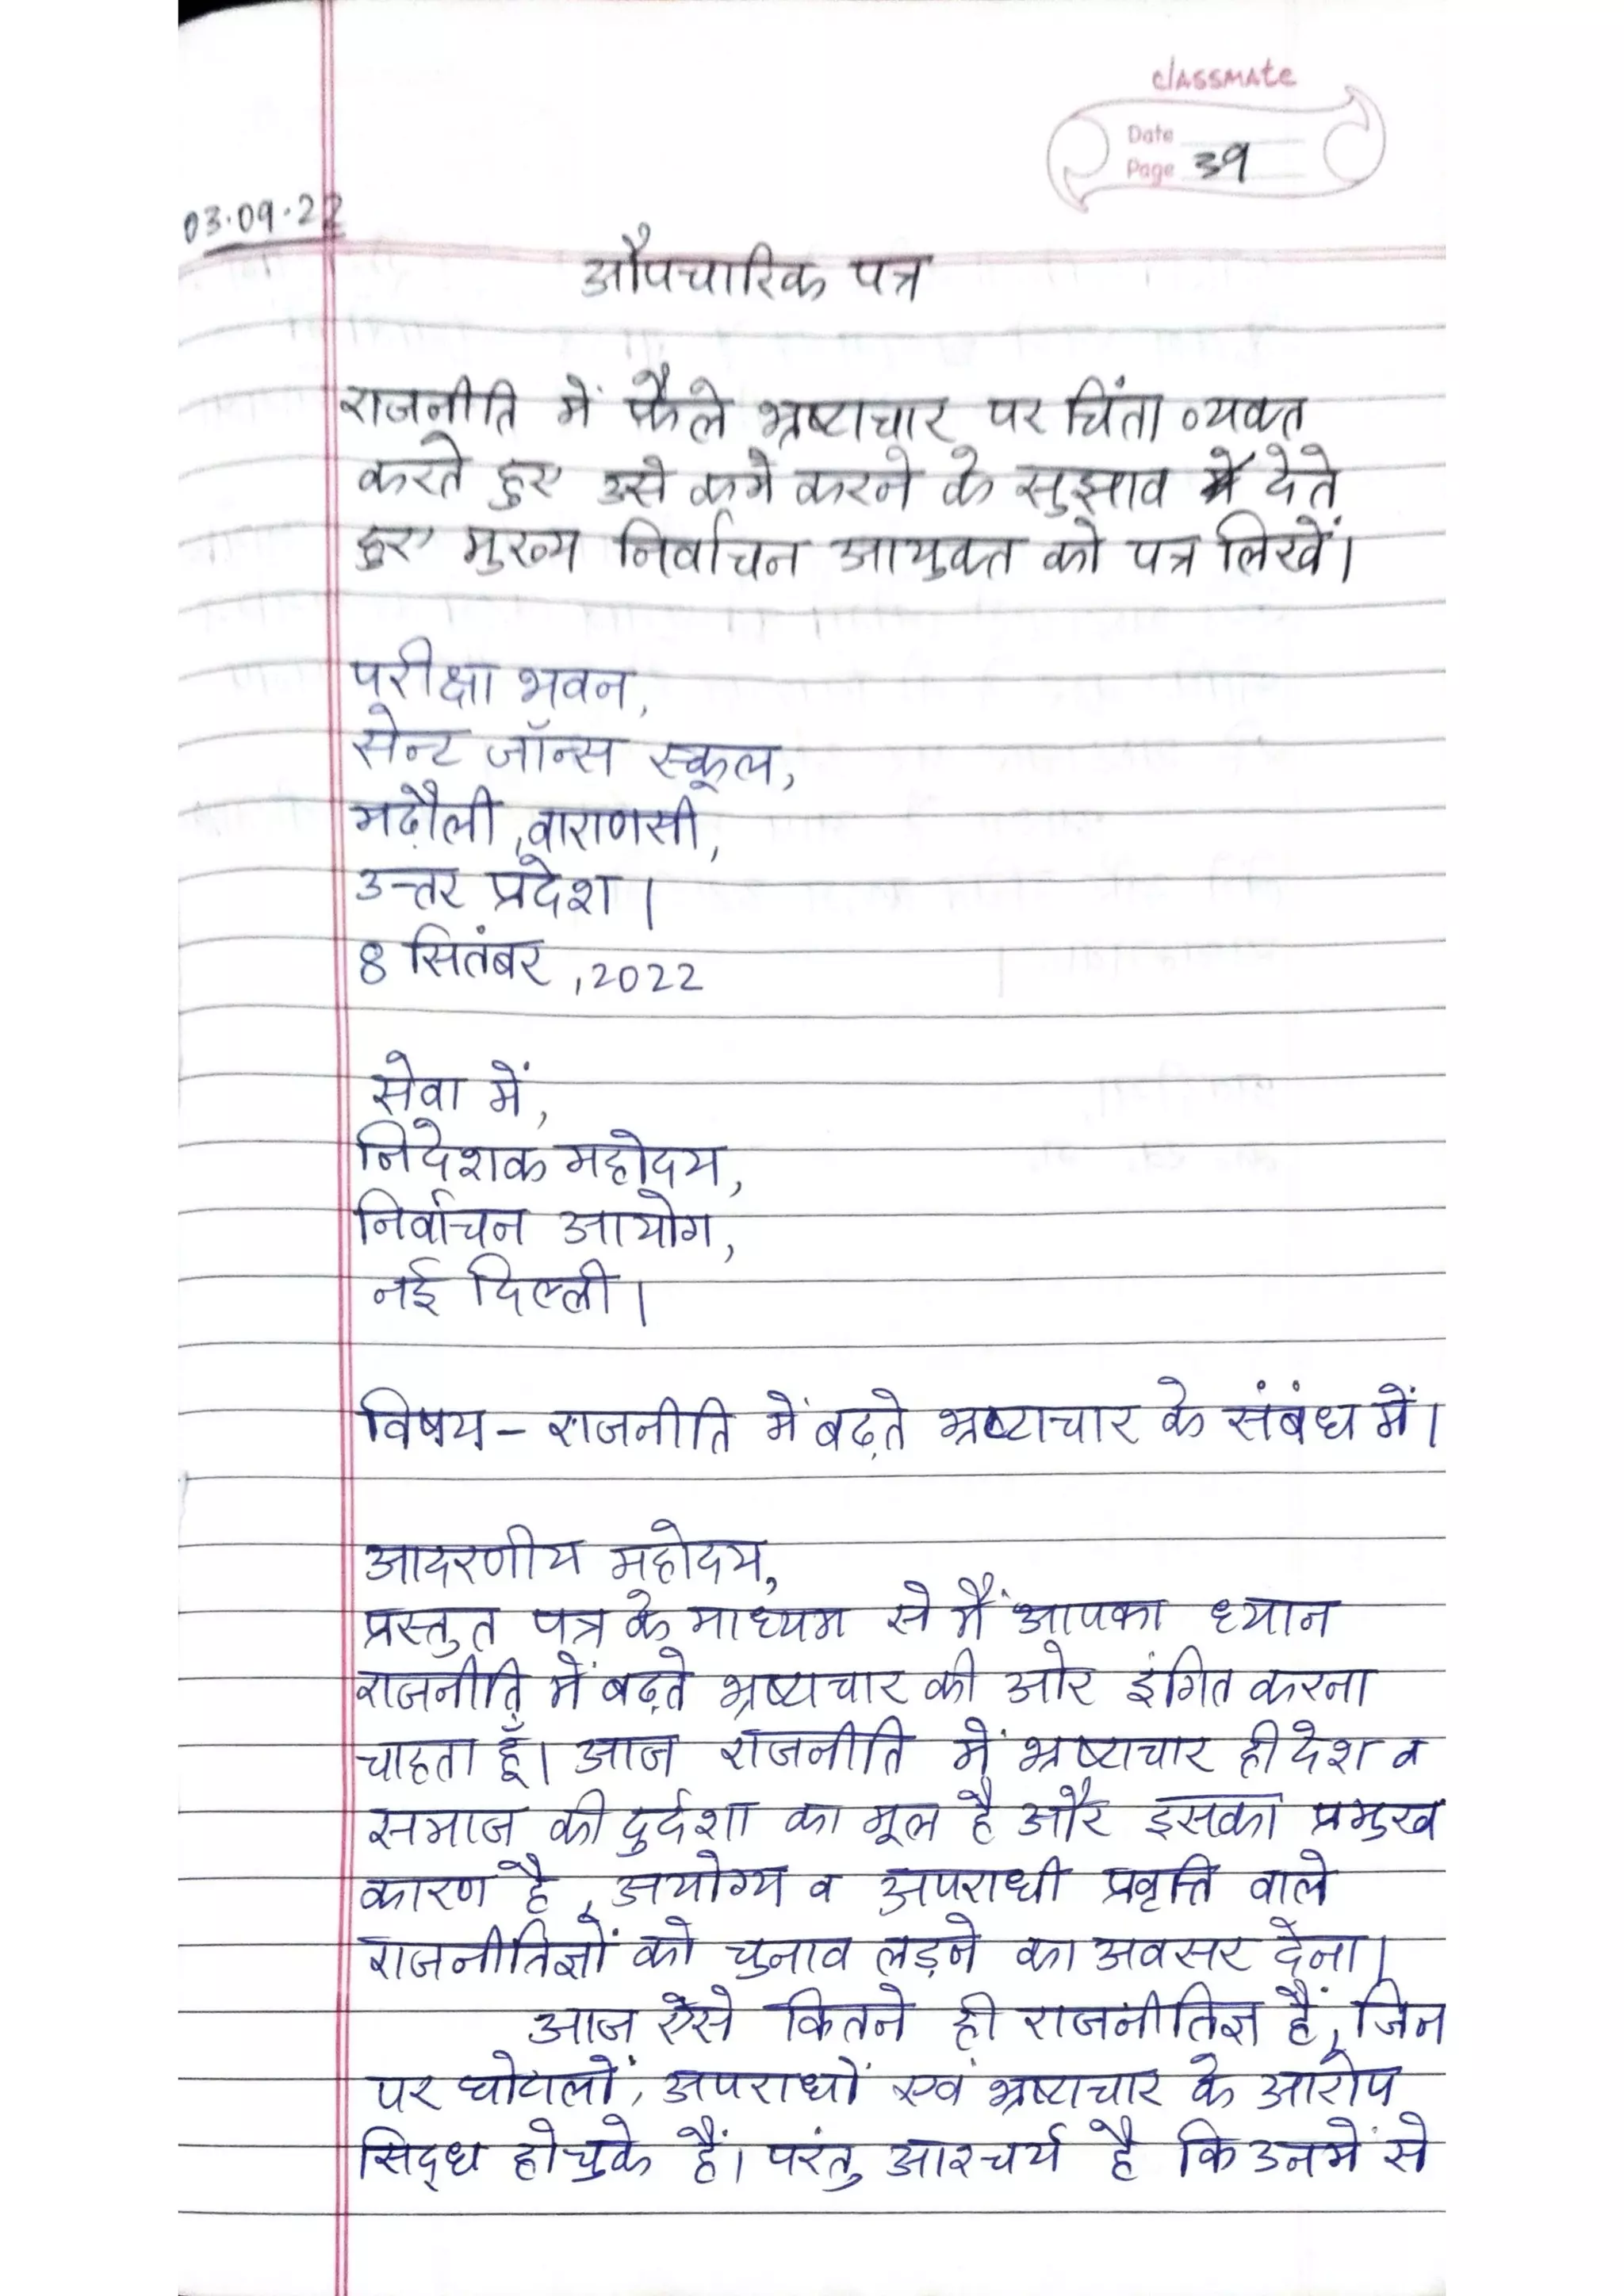 classmate
Date
Page 39
03.09.22
औपचारिक पत्र
राजनीति में फैले भ्रष्टाचार पर चिंता व्यक्त
करते हुए उसे कम करने के सुझाव देते
हुए मुख्य निर्वाचन आयुक्त को पत्र लिखें।
परीक्षा भवन,
सेन्ट जॉन्स स्कूल,
मढ़ौली, वाराणसी,
उत्तर प्रदेश।
8 सितंबर, 2022
सेवा में,
निदेशक महोदय,
निर्वाचन आयोग,
नई दिल्ली।
विषय - राजनीति में बढ़ते भ्रष्टाचार के संबंध में।
आदरणीय महोदय,
प्रस्तुत पत्र के माध्यम से मैं आपका ध्यान
राजनीति में बढ़ते भ्रष्टाचार की ओर इंगित करना
चाहता हूँ। आज राजनीति में भ्रष्टाचार ही देश व
समाज की दुर्दशा का मूल है और इसका प्रमुख
कारण है, अयोग्य व अपराधी प्रवृत्ति वाले
राजनीतिज्ञों को चुनाव लड़ने का अवसर देना।
आज ऐसे कितने ही राजनीतिज्ञ हैं, जिन
पर घोटालों, अपराधों एवं भ्रष्टाचार के आरोप
सिद्ध हो चुके हैं। परंतु आश्चर्य है कि उनमें से